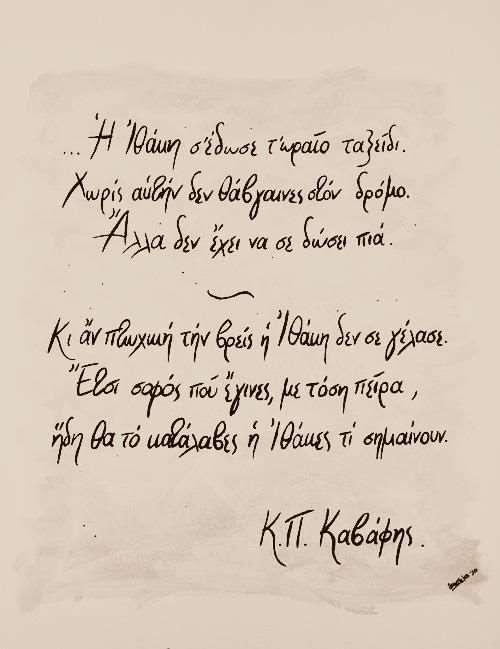 ...Ἡ Ἰθάκη σ'έδωσε τ'ωραίο ταξείδι.
Χωρίς αὐτήν δεν θάβγαινες στόν δρόμο.
Ἄλλα δεν ἔχει να σε δώσει πιά.
Κι ἄν πτωχική τήν βρείς ἡ Ἰθάκη δεν σε γέλασε.
Ἔτσι σοφός πού ἔγινες, με τόση πείρα,
ἤδη θα τό κατάλαβες ἡ Ἰθάκες τί σημαίνουν.
Κ.Π. Καβάφης.